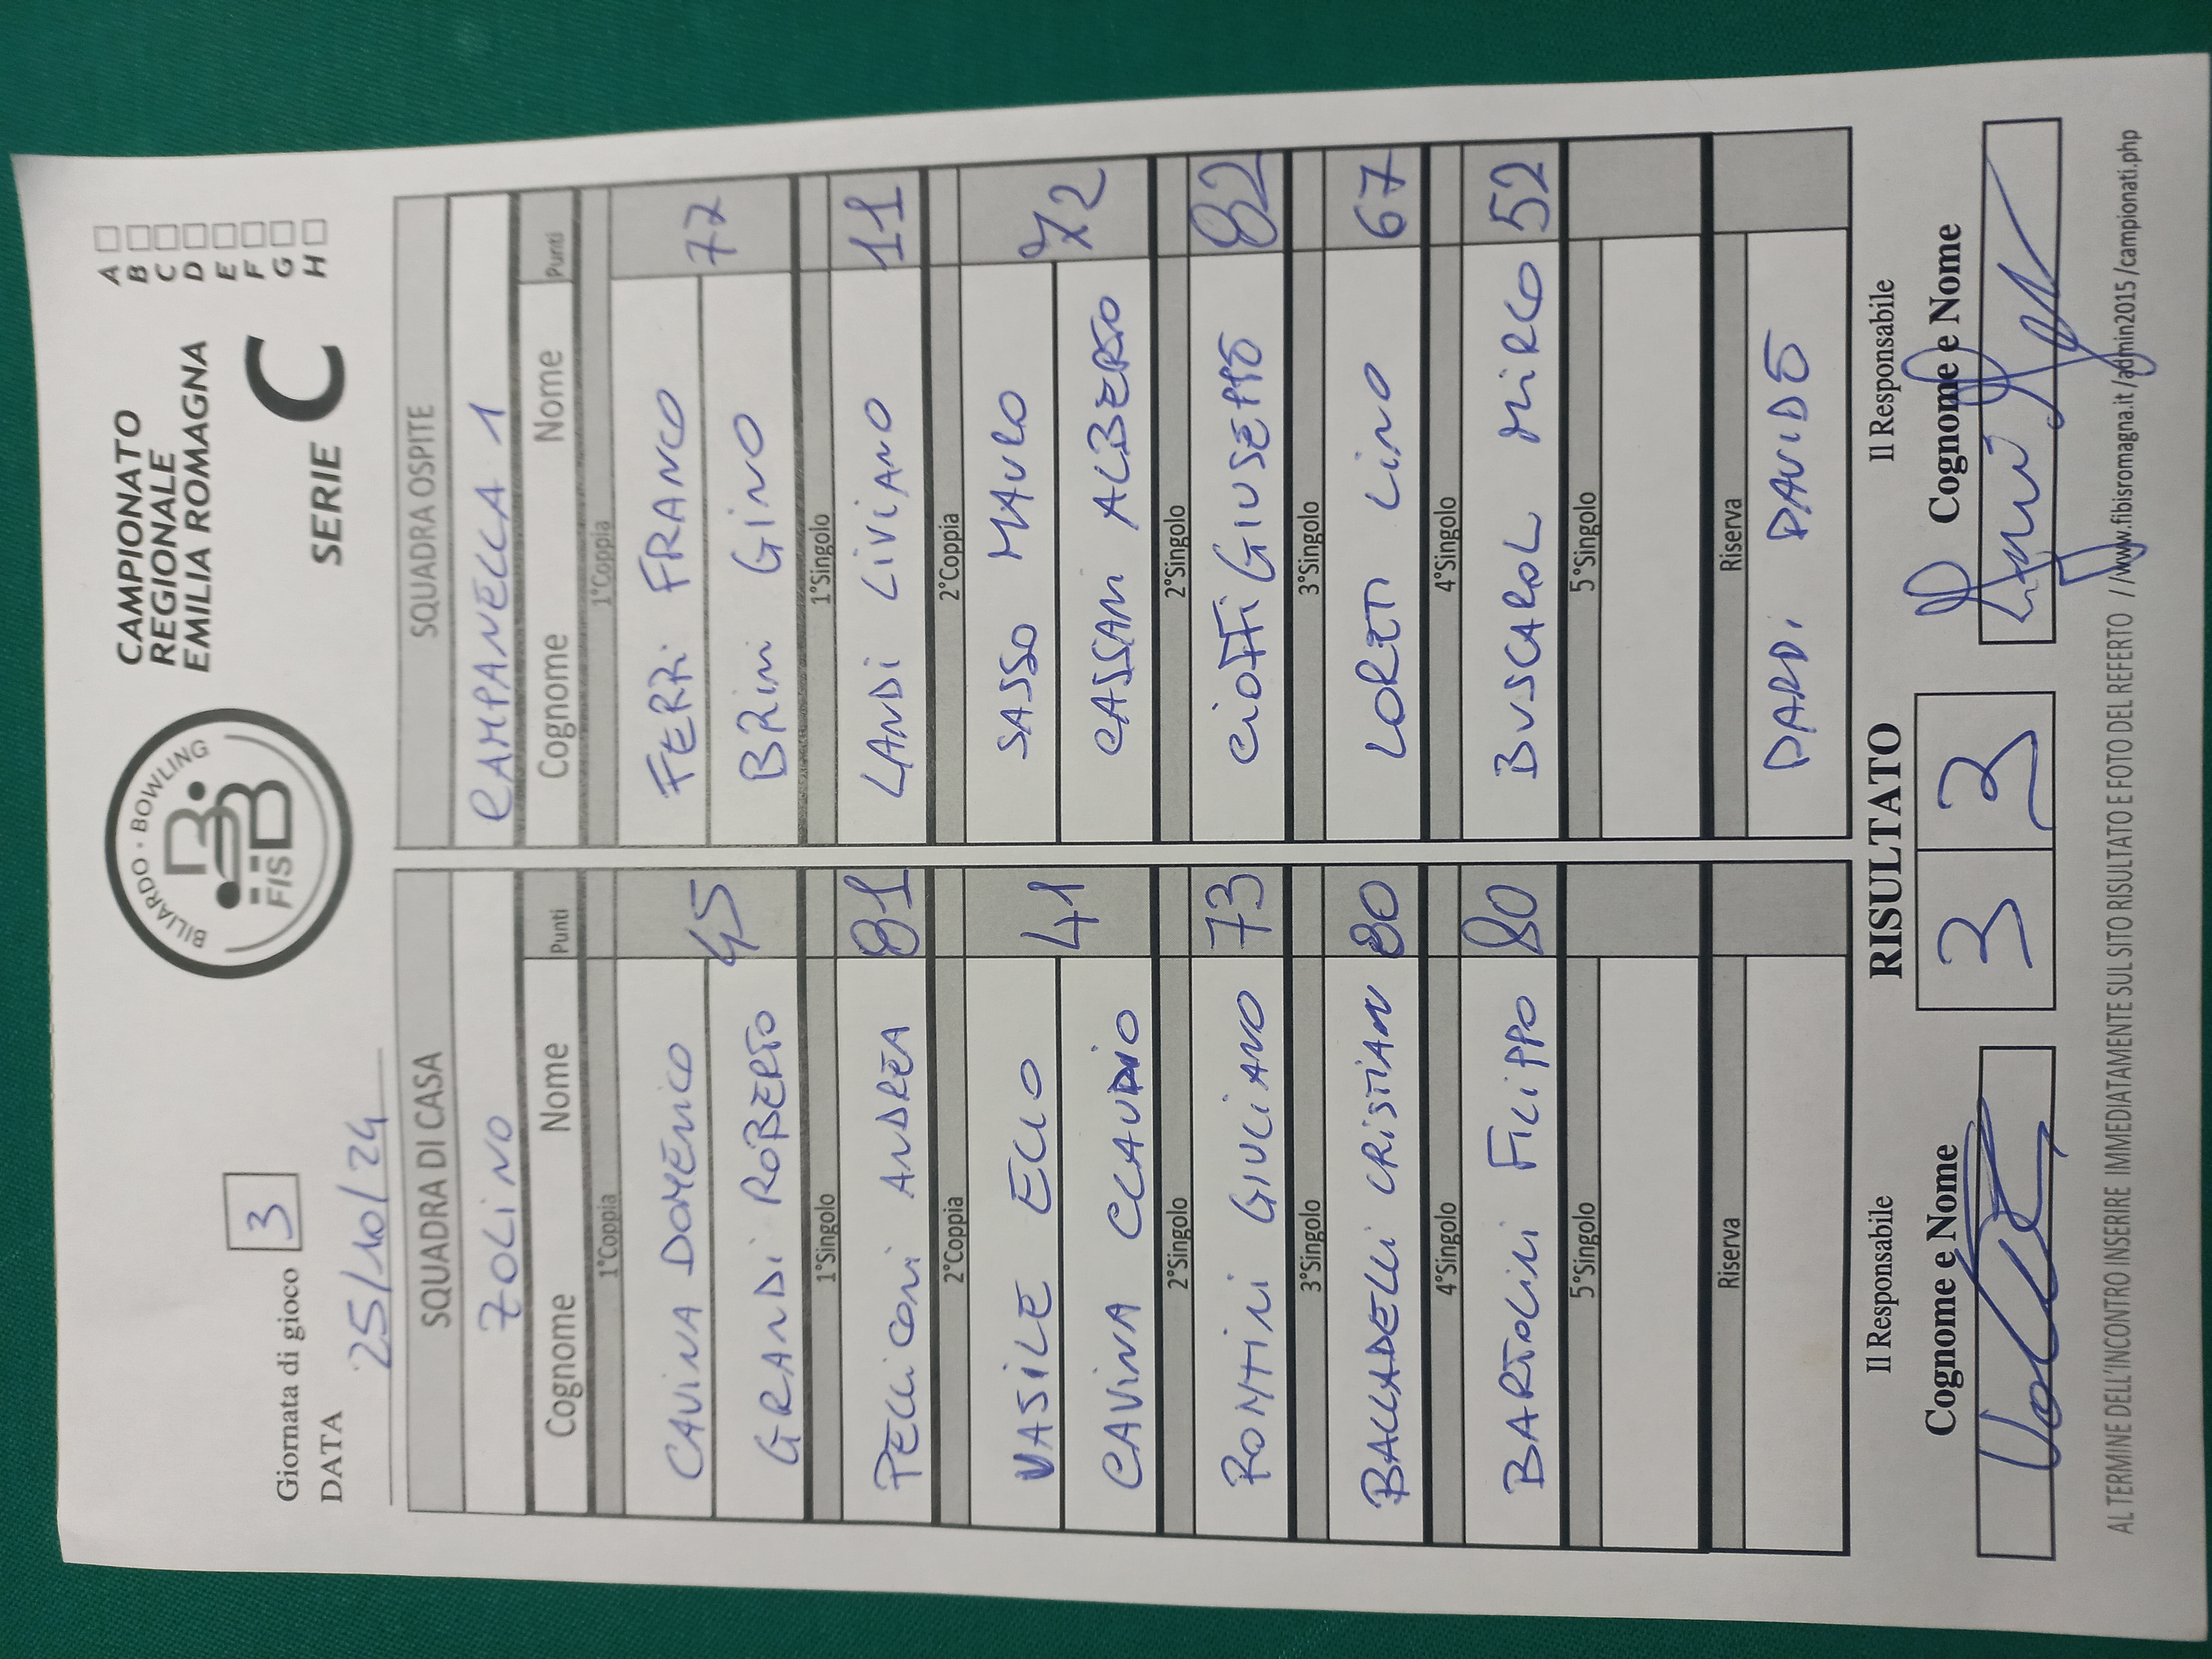 Giornata di gioco 3
DATA 25/10/24
BILIARDO · BOWLING
FISBB
CAMPIONATO
REGIONALE
EMILIA ROMAGNA
SERIE C
A
B
C
D
E
F
G
H
SQUADRA DI CASA SQUADRA OSPITE
ZOLINO CAMPANELLA 1
Cognome Nome Punti Cognome Nome Punti
1°Coppia 1°Coppia
CAVINA DOMENICO 45 FERRI FRANCO 77
GRANDI ROBERTO BRINI GINO
1°Singolo 1°Singolo
PELLICONI ANDREA 81 LANDI LIVIANO 11
2°Coppia 2°Coppia
VASILE ELIO 41 SASSO MAURO 72
CAVINA CLAUDIO CASSANI ALBERTO
2°Singolo 2°Singolo
RONTINI GIULIANO 73 CIOFFI GIUSEPPE 82
3°Singolo 3°Singolo
BALLADELLI CRISTIAN 80 LORETI LINO 67
4°Singolo 4°Singolo
BARTOLINI FILIPPO 80 BUSCAROL MIRCO 52
5°Singolo 5°Singolo
Riserva Riserva
DARDI DAVIDE
Il Responsabile RISULTATO Il Responsabile
Cognome e Nome 3 3 Cognome e Nome
AL TERMINE DELL'INCONTRO INSERIRE IMMEDIATAMENTE SUL SITO RISULTATO E FOTO DEL REFERTO //www.fibisromagna.it/admin2015/campionati.php